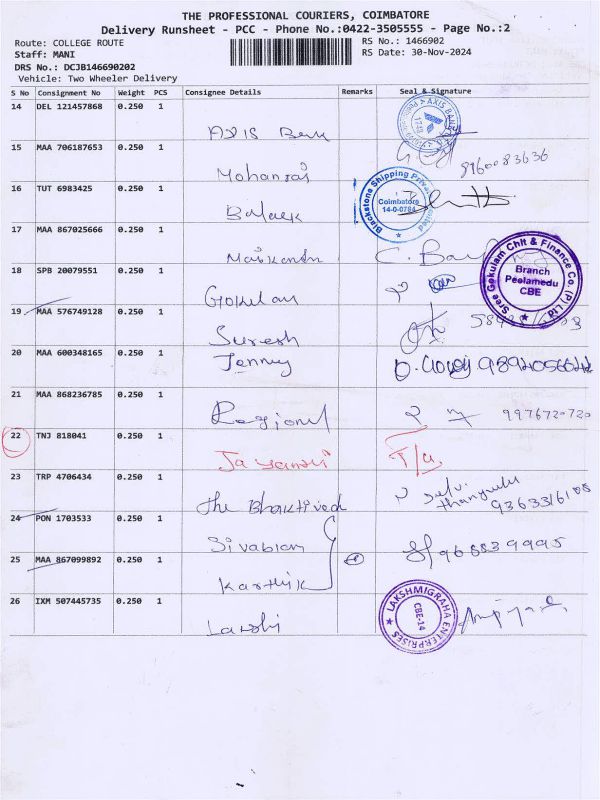 THE PROFESSIONAL COURIERS, COIMBATORE
Delivery Runsheet - PCC - Phone No.:0422-3505555 - Page No.:2
Route: COLLEGE ROUTE
RS No.: 1466902
Staff: MANI
RS Date: 30-Nov-2024
DRS No.: DCJB146690202
Vehicle: Two Wheeler Delivery
S No Consignment No Weight PCS Consignee Details Remarks Seal & Signature
14 DEL 121457868 0.250 1
AXIS Bank
AXIS BANK
15 MAA 706187653 0.250 1
Mohanraj
9160083636
16 TUT 6983425 0.250 1
Balack
Blackstone Shipping Private Limited
Coimbatore
14-0-0784
17 MAA 867025666 0.250 1
Manikandan
18 SPB 20079551 0.250 1
Gokulan
Sree Gokulam Chit & Finance Co. (P) Ltd
Branch
Peelamedu
CBE
19 MAA 576749128 0.250 1
Suresh
20 MAA 600348165 0.250 1
Jenny
21 MAA 868236785 0.250 1
Regional
9976720720
22 TNJ 818041 0.250 1
Jayanthi
23 TRP 4706434 0.250 1
The Bhaktived
Selvi
24 PON 1703533 0.250 1
Sivabian
966839995
25 MAA 867099892 0.250 1
Karthik
26 IXM 507445735 0.250 1
LAKSHMIGRAHA ENTERPRISES
CBE-14